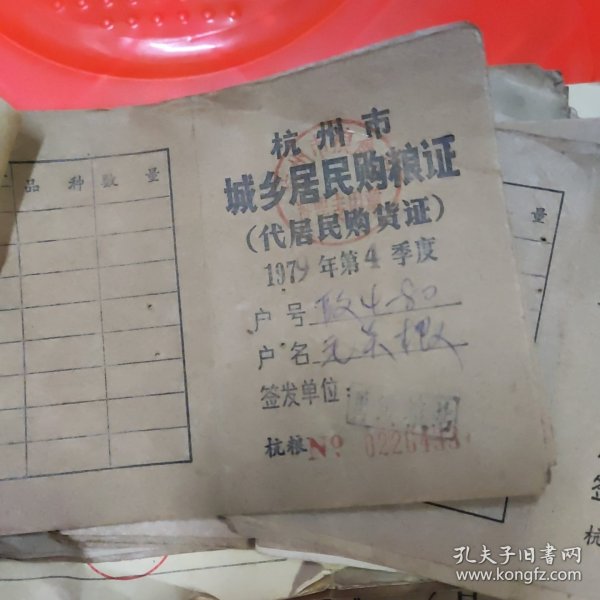 品 种 数 量
杭州市
城乡居民购粮证
(代居民购货证)
1979年第4季度
户号 4-80
户名
签发单位:
杭粮 No 0226433
量
签
杭
孔夫子旧书网
www.kongfz.com